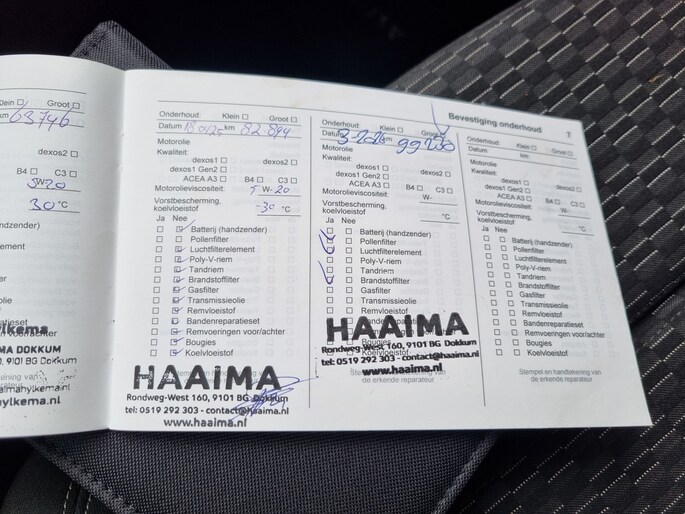 Klein ☐ Groot ☐
km 63746
dexos2 ☐
B4 ☐ C3 ☐
5W20
30 °C
handzender)
element
olie
atieset
n voor/achter
ylkema
MA DOKKUM
0, 9101 BG Dokkum
ening van
aimahylkema.nl
hylkema.nl
Onderhoud: Klein ☐ Groot ☐
Datum km 82.894
Motorolie
Kwaliteit:
dexos1 ☐ dexos2 ☐
dexos1 Gen2 ☐
ACEA A3 ☐ B4 ☐ C3 ☐
Motorolieviscositeit: 5 W- 20
Vorstbescherming, koelvloeistof -30 °C
Ja Nee
☐ ☑ Batterij (handzender)
☐ ☑ Pollenfilter
☐ ☑ Luchtfilterelement
☐ ☑ Poly-V-riem
☐ ☑ Tandriem
☐ ☑ Brandstoffilter
☐ ☑ Gasfilter
☐ ☑ Transmissieolie
☐ ☑ Remvloeistof
☐ ☑ Bandenreparatieset
☐ ☑ Remvoeringen voor/achter
☐ ☑ Bougies
☐ ☑ Koelvloeistof
HAAIMA
Rondweg-West 160, 9101 BG Dokkum
tel: 0519 292 303 - contact@haaima.nl
www.haaima.nl
Bevestiging onderhoud 7
Onderhoud: Klein ☐ Groot ☐
Datum km 99250
Motorolie
Kwaliteit:
dexos1 ☐ dexos2 ☐
dexos1 Gen2 ☐
ACEA A3 ☐ B4 ☐ C3 ☐
Motorolieviscositeit: W-
Vorstbescherming, koelvloeistof °C
Ja Nee
☐ ☐ Batterij (handzender)
☑ ☐ Pollenfilter
☐ ☐ Luchtfilterelement
☐ ☐ Poly-V-riem
☐ ☐ Tandriem
☑ ☐ Brandstoffilter
☐ ☐ Gasfilter
☐ ☐ Transmissieolie
☐ ☐ Remvloeistof
☐ ☐ Bandenreparatieset
☐ ☐ Remvoeringen voor/achter
☐ ☐ Bougies
☐ ☐ Koelvloeistof
HAAIMA
Rondweg-West 160, 9101 BG Dokkum
tel: 0519 292 303 - contact@haaima.nl
www.haaima.nl
Stempel en handtekening van
de erkende reparateur
Onderhoud: Klein ☐ Groot ☐
Datum km
Motorolie
Kwaliteit:
dexos1 ☐ dexos2 ☐
dexos1 Gen2 ☐
ACEA A3 ☐ B4 ☐ C3 ☐
Motorolieviscositeit: W-
Vorstbescherming, koelvloeistof °C
Ja Nee
☐ ☐ Batterij (handzender)
☐ ☐ Pollenfilter
☐ ☐ Luchtfilterelement
☐ ☐ Poly-V-riem
☐ ☐ Tandriem
☐ ☐ Brandstoffilter
☐ ☐ Gasfilter
☐ ☐ Transmissieolie
☐ ☐ Remvloeistof
☐ ☐ Bandenreparatieset
☐ ☐ Remvoeringen voor/achter
☐ ☐ Bougies
☐ ☐ Koelvloeistof
Stempel en handtekening van
de erkende reparateur